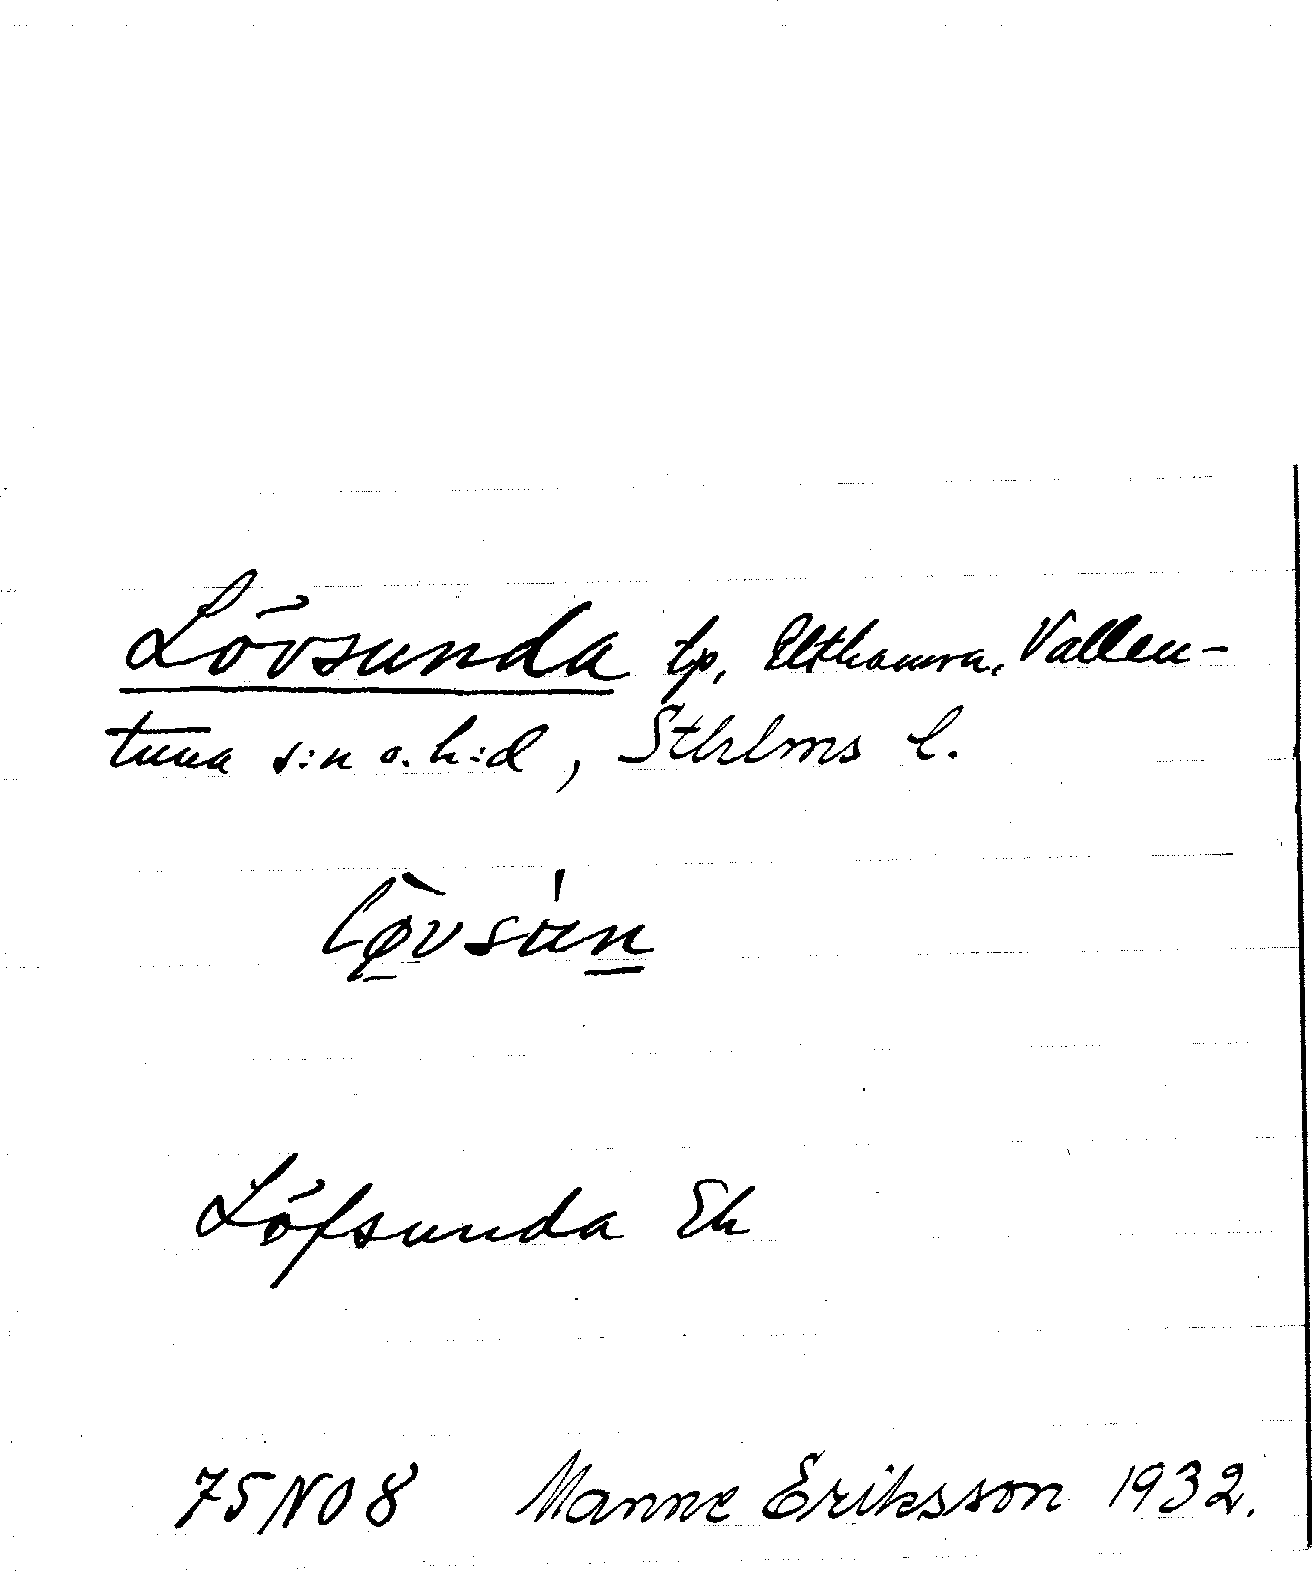 Lövsunda tp, Elthamra, Vallen-
tuna s:n o. h:d, Sthlms l.
Löfsunda Ek
75 NO 8 Manne Eriksson 1932.